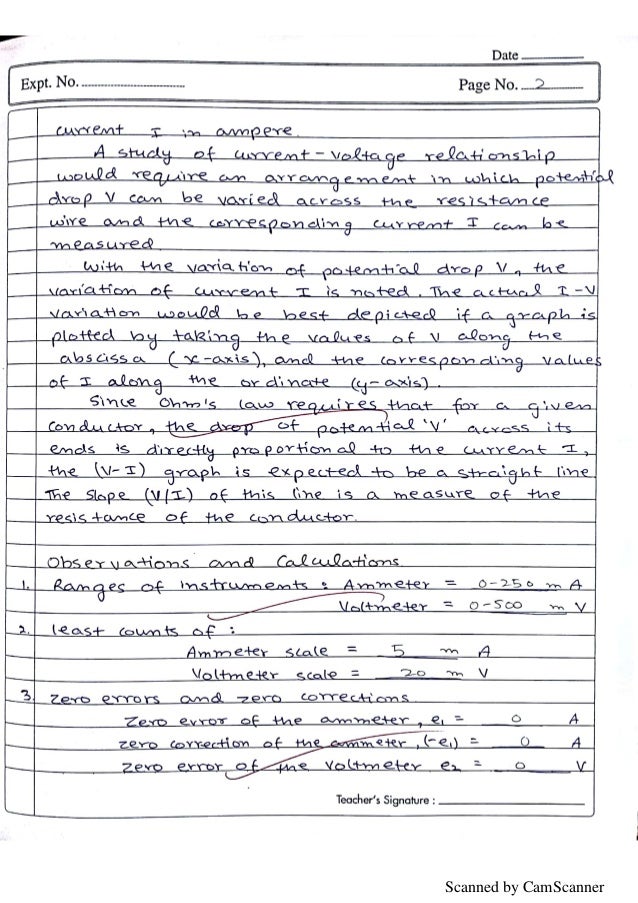 Date
Expt. No.
Page No. 2
current I in ampere.
A study of current-voltage relationship
would require an arrangement in which potential
drop V can be varied across the resistance
wire and the corresponding current I can be
measured.
With the variation of potential drop V, the
variation of current I is noted. The actual I-V
variation would be best depicted if a graph is
plotted by taking the values of V along the
abscissa (x-axis), and the corresponding values
of I along the ordinate (y-axis).
Since Ohm's law requires that for a given
conductor, the drop of potential 'V' across its
ends is directly proportional to the current I,
the (V-I) graph is expected to be a straight line
The slope (V/I) of this line is a measure of the
resistance of the conductor.
Observations and Calculations
1. Ranges of instruments : Ammeter = 0-250 m A
Voltmeter = 0-500 m V
2. least counts of :
Ammeter scale = 5 m A
Voltmeter scale = 20 m V
3. zero errors and zero corrections
Zero error of the ammeter, e₁ = 0 A
zero correction of the ammeter, (-e₁) = 0 A
zero error of the voltmeter e₂ = 0 V
Teacher's Signature :
Scanned by CamScanner